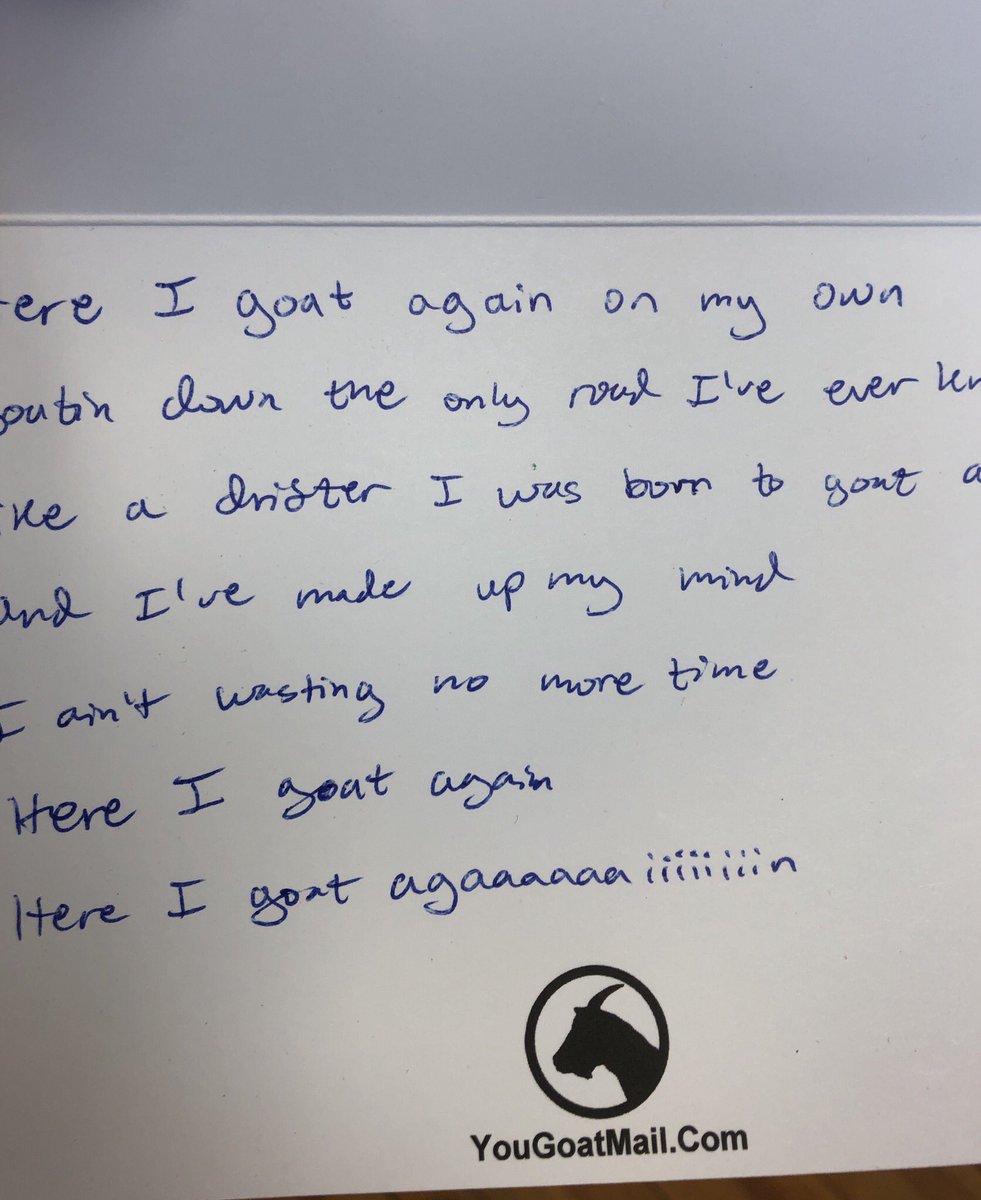 ere I goat again on my own
outin down the only road I've ever kn
ike a drifter I was born to goat a
and I've made up my mind
I ain't wasting no more time
Here I goat again
Here I goat agaaaaaaiiiiiiiin
YouGoatMail.Com